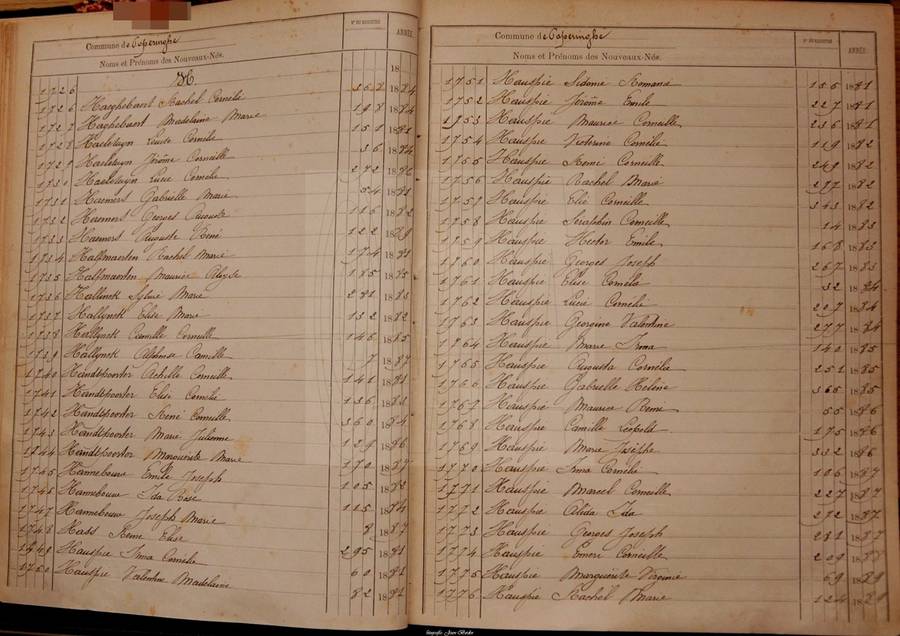 Commune de Poperinghe
Noms et Prénoms des Nouveaux-Nés.
N° DU REGISTRE
ANNÉE
18
H
1726
1726 Haeghebaert Rachel Cornélie
1727 Haghebaert Madelaine Marie
1728 Haelewyn Cornélie 151
1729 Haelewyn Jérôme Corneille 36
1730 Haelewyn Lucie Cornélie 272
1731 Haemers Gabrielle Marie 54
1732 Haemers Georges Auguste 116 1882
1733 Haemers Auguste René 122
1734 Halfmaerten Rachel Marie 174
1735 Halfmaerten Maurice 185
1736 Hallinck Sylvie Marie 281 1883
1737 Hallynck Elise Marie 132 1882
1738 Hallynck Camille Corneille 146 1885
1739 Hallynck Alphonse Camille 7 1887
1740 Handtpoorter Achille Corneille 141
1741 Handtpoorter Elise Cornélie 136
1742 Handtpoorter René Corneille 360
1743 Handtpoorter Marie Julienne 129 1886
1744 Handtpoorter Marguerite Marie 170 1887
1745 Hannebouw Emile Joseph 105
1746 Hannebouw Ida Rose 115
1747 Hannebouw Joseph Marie 8 1887
1748 Hass Remi Elise
1749 Hauspie Irma Cornélie 295
1750 Hauspie Valentine Madelaine 60
82
Commune de Poperinghe
Noms et Prénoms des Nouveaux-Nés.
N° DU REGISTRE
ANNÉE
1751 Hauspie Sidonie Romanie 155 1881
1752 Hauspie Jérôme Emile 227 1881
1753 Hauspie Maurice Corneille 236 1881
1754 Hauspie Cornélie 119 1882
1755 Hauspie Remi Corneille 249 1882
1756 Hauspie Rachel Marie 277 1882
1757 Hauspie Elie Corneille 343 1882
1758 Hauspie Séraphin Corneille 14 1883
1759 Hauspie Hector Emile 168 1883
1760 Hauspie Georges Joseph 267 1883
1761 Hauspie Elise Cornélie 32 1884
1762 Hauspie Lucie Cornélie 227 1884
1763 Hauspie Georgine Valentine 277 1884
1764 Hauspie Marie Irma 140 1885
1765 Hauspie Augusta Cornélie 251 1885
1766 Hauspie Gabrielle Hélène 365 1885
1767 Hauspie Maurice Remi 55 1886
1768 Hauspie Camille Léopold 175 1886
1769 Hauspie Marie Josèphe 332 1886
1770 Hauspie Irma Cornélie 106 1887
1771 Hauspie Marcel Corneille 227 1887
1772 Hauspie Alida Ida 272 1887
1773 Hauspie Georges Joseph 281 1887
1774 Hauspie Corneille 209
1775 Hauspie Marguerite Virginie 69 1889
1776 Hauspie Rachel Marie 124